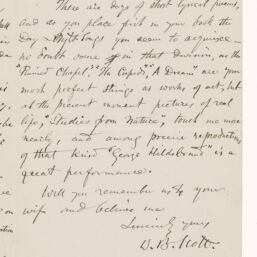 There are drop of short lyrical poems,
and as you place first in your book the
Day - & Night Songs you seem to acquiesce
no doubt some in that division, as the
Ruined Chapel," "The Cupids" "A Dream" are your
most perfect things as works of art, but
at the present moment pictures of real
life, "Studies from Nature", touch me more
nearly, and among precise reproductions
of that kind "George Hildebrand" is a
great performance.
Will you remember us to your
wife and believe me
Sincerely yours
W. B. Scott.